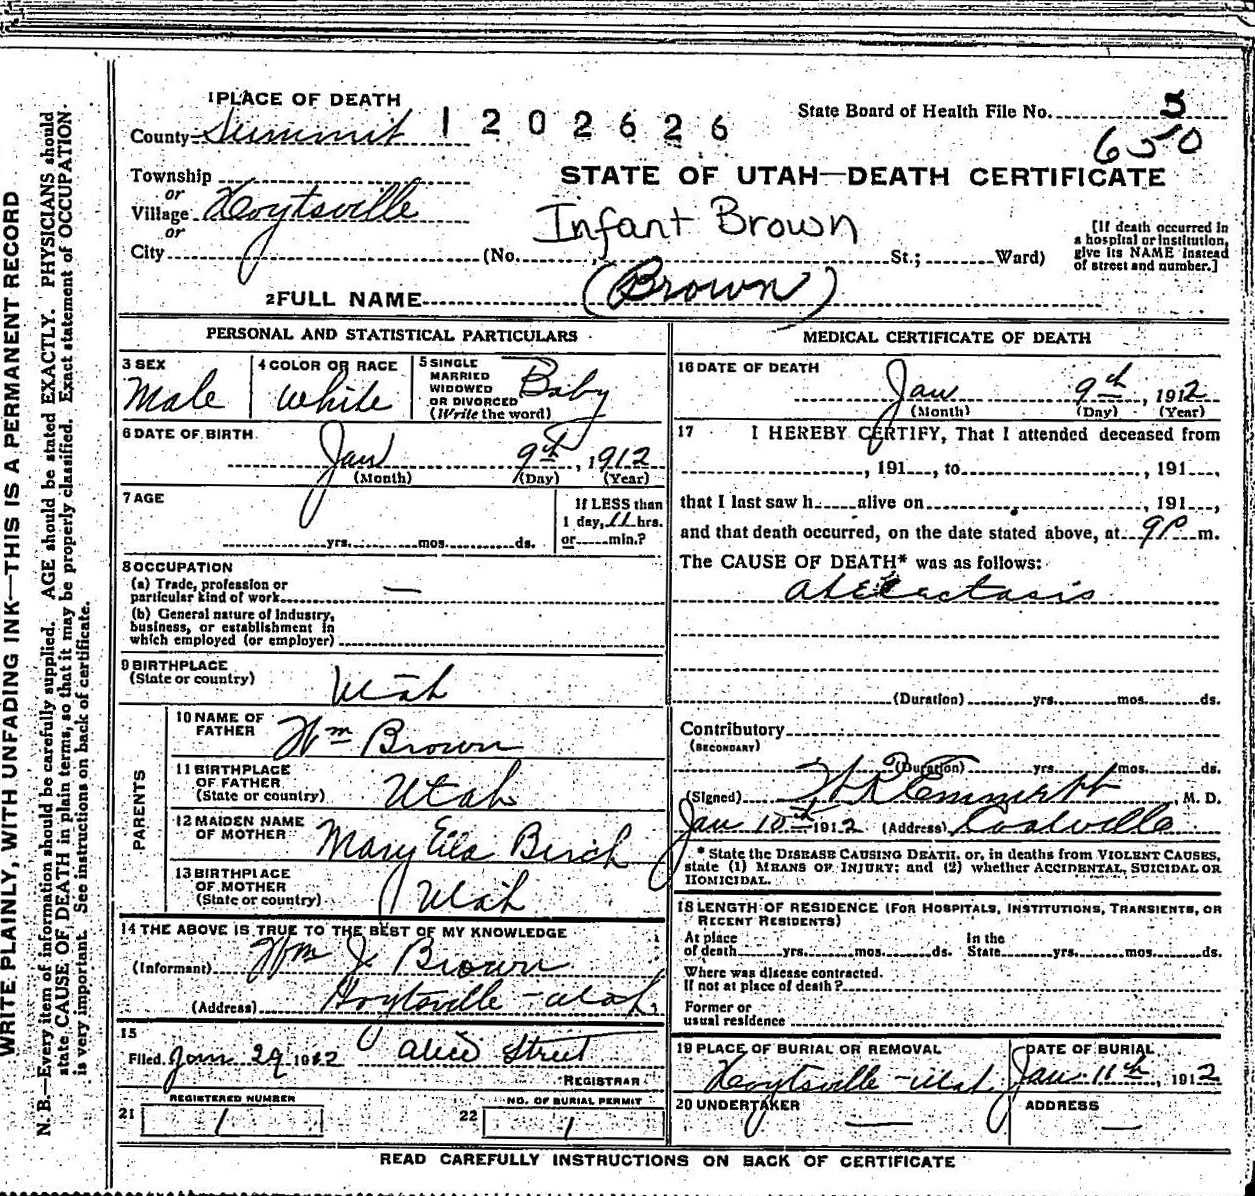 1 PLACE OF DEATH
County Summit
1202626
State Board of Health File No. 5
650
Township
or
Village Hoytsville
or
City (No. St.; Ward)
STATE OF UTAH—DEATH CERTIFICATE
Infant Brown
[If death occurred in
a hospital or institution,
give its NAME instead
of street and number.]
2 FULL NAME (Brown)
PERSONAL AND STATISTICAL PARTICULARS
3 SEX
Male
4 COLOR OR RACE
White
5 SINGLE
MARRIED
WIDOWED
OR DIVORCED
(Write the word)
Baby
6 DATE OF BIRTH
Jan 9th, 1912
(Month) (Day) (Year)
7 AGE
yrs. mos. ds.
If LESS than
1 day, 11 hrs.
or min.?
8 OCCUPATION
(a) Trade, profession or
particular kind of work —
(b) General nature of Industry,
business, or establishment in
which employed (or employer)
9 BIRTHPLACE
(State or country)
Utah
PARENTS
10 NAME OF
FATHER
Wm Brown
11 BIRTHPLACE
OF FATHER
(State or country)
Utah
12 MAIDEN NAME
OF MOTHER
Mary Ella Birch
13 BIRTHPLACE
OF MOTHER
(State or country)
Utah
14 THE ABOVE IS TRUE TO THE BEST OF MY KNOWLEDGE
(Informant) Wm J. Brown
(Address) Hoytsville - Utah
15
Filed Jan 29 1912 Alice Street
REGISTRAR
21 REGISTERED NUMBER
1
22 NO. OF BURIAL PERMIT
1
MEDICAL CERTIFICATE OF DEATH
16 DATE OF DEATH
Jan 9th, 1912
(Month) (Day) (Year)
17 I HEREBY CERTIFY, That I attended deceased from
, 191 , to , 191 ,
that I last saw h alive on , 191 ,
and that death occurred, on the date stated above, at 9P m.
The CAUSE OF DEATH* was as follows:
Atelectasis
(Duration) yrs. mos. ds.
Contributory
(SECONDARY)
(Duration) yrs. mos. ds.
(Signed) M. D.
Jan 10th 1912 (Address) Coalville
* State the DISEASE CAUSING DEATH, or, in deaths from VIOLENT CAUSES,
state (1) MEANS OF INJURY; and (2) whether ACCIDENTAL, SUICIDAL OR
HOMICIDAL.
18 LENGTH OF RESIDENCE (FOR HOSPITALS, INSTITUTIONS, TRANSIENTS, OR
RECENT RESIDENTS)
At place
of death yrs. mos. ds.
In the
State yrs. mos. ds.
Where was disease contracted.
If not at place of death?
Former or
usual residence
19 PLACE OF BURIAL OR REMOVAL
Hoytsville - Utah
DATE OF BURIAL
Jan 11th, 1912
20 UNDERTAKER
—
ADDRESS
—
READ CAREFULLY INSTRUCTIONS ON BACK OF CERTIFICATE
WRITE PLAINLY, WITH UNFADING INK—THIS IS A PERMANENT RECORD
N. B.—Every item of information should be carefully supplied. AGE should be stated EXACTLY. PHYSICIANS should
state CAUSE OF DEATH in plain terms, so that it may be properly classified. Exact statement of OCCUPATION
is very important. See instructions on back of certificate.